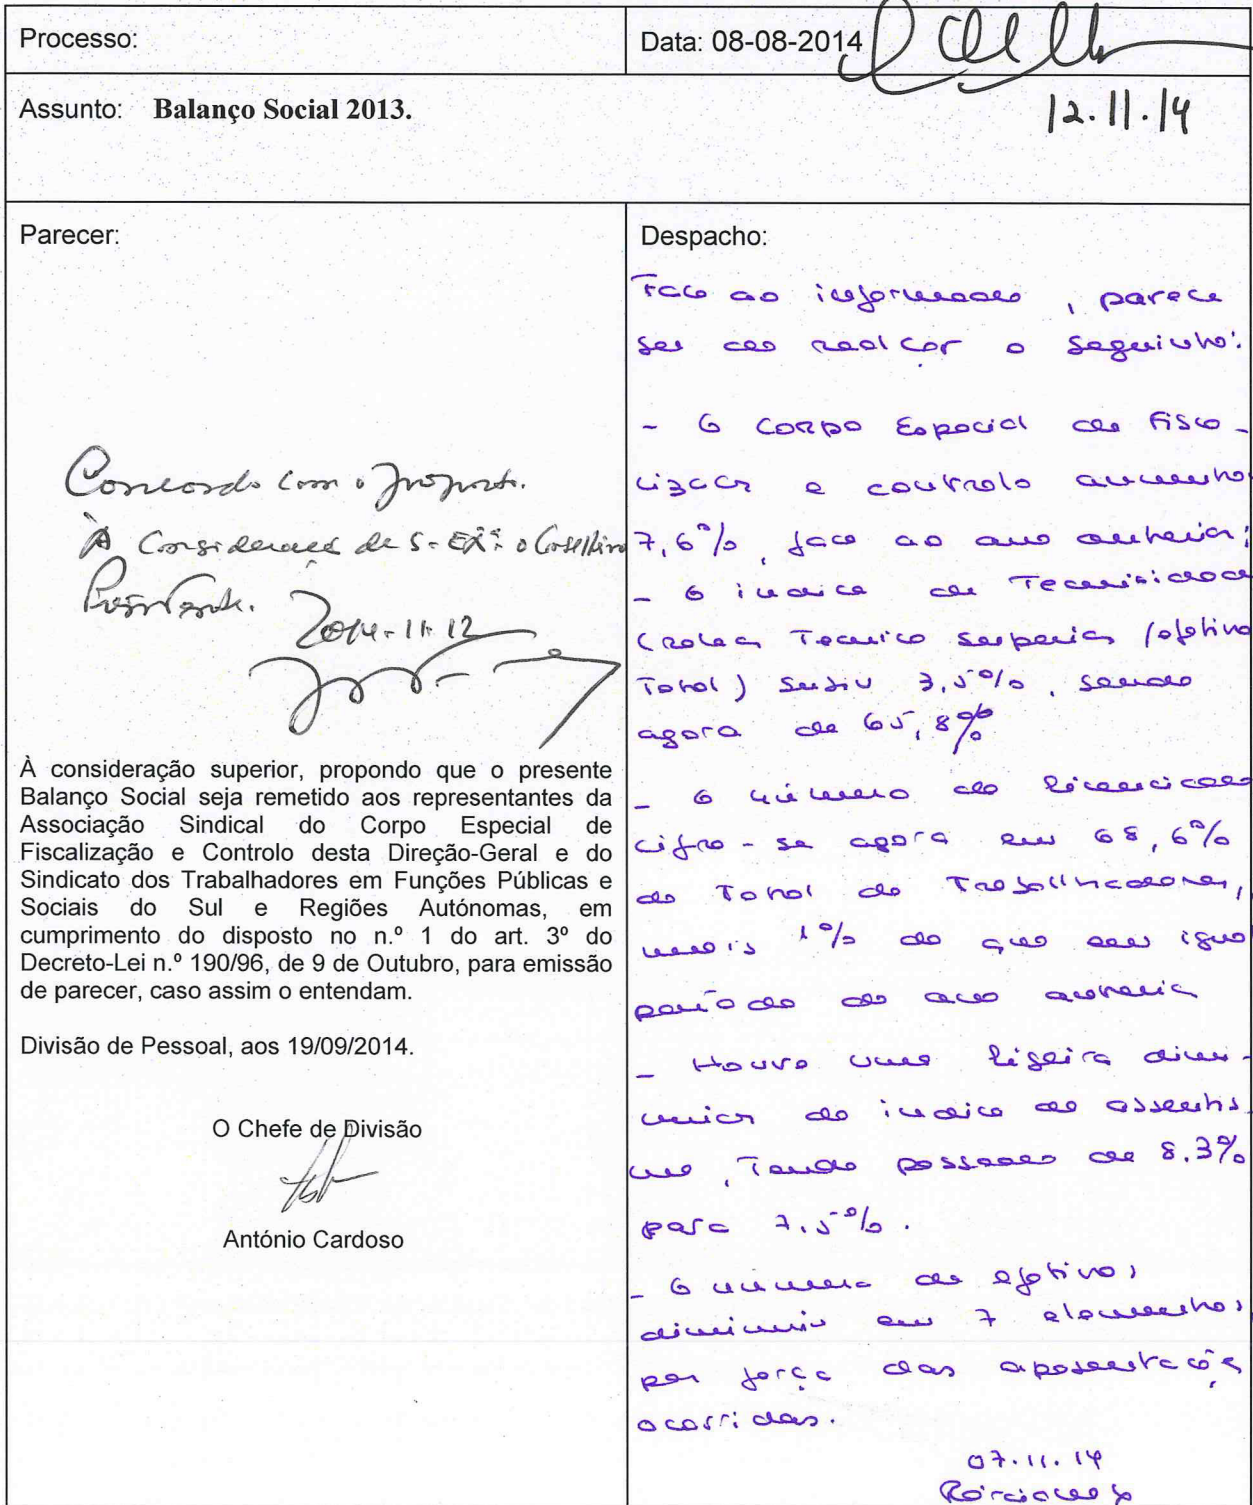 Processo:
Data: 08-08-2014
12.11.14
Assunto: Balanço Social 2013.
Parecer:
Concordo com o proposto.
À Consideração de S. Exª o Conselheiro
Presidente.
2014-11-12
À consideração superior, propondo que o presente
Balanço Social seja remetido aos representantes da
Associação Sindical do Corpo Especial de
Fiscalização e Controlo desta Direção-Geral e do
Sindicato dos Trabalhadores em Funções Públicas e
Sociais do Sul e Regiões Autónomas, em
cumprimento do disposto no n.º 1 do art. 3º do
Decreto-Lei n.º 190/96, de 9 de Outubro, para emissão
de parecer, caso assim o entendam.
Divisão de Pessoal, aos 19/09/2014.
O Chefe de Divisão
António Cardoso
Despacho:
Face ao informado, parece
ser de realçar o seguinte:
- O Corpo Especial de Fisca-
lização e controlo aumentou
7,6%, face ao ano anterior;
- O índice de Tecnicidade
(relação Técnico superior/efetivo
Total) subiu 3,5%, sendo
agora de 65,8%
- O número de licenciados
cifra-se agora em 68,6%
do Total de Trabalhadores,
mais 1% do que em igual
período do ano anterior
- Houve uma ligeira dimi-
nuição do índice de absentis-
mo, Tendo passado de 8.3%
para 7.5%.
- O número de efetivos
diminuiu em 7 elementos,
por força das aposentações
ocorridas.
07.11.14